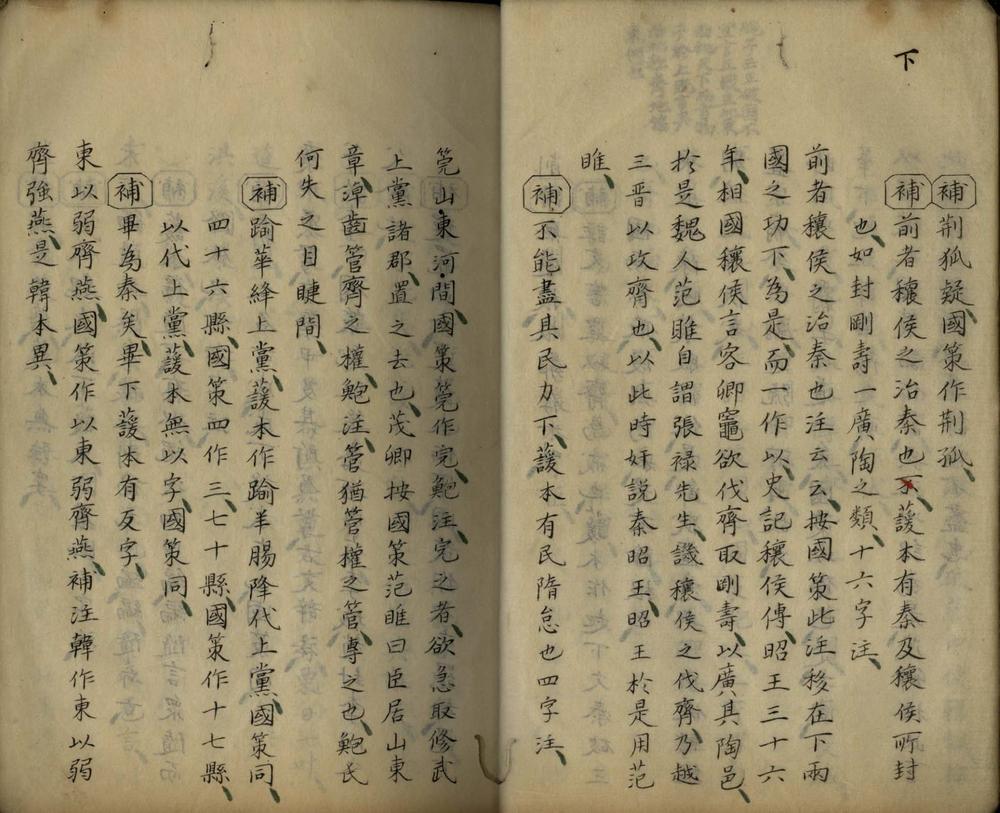 下
補荆狐疑國策作荆孤
補前者穰侯之治秦也下䕶本有秦及穰侯所封
也如封剛壽一廣陶之類十六字注
前者穰侯之治秦也注云云按國策此注移在下兩
國之功下為是而一作以史記穰侯傳昭王三十六
年相國穰侯言客卿竈欲伐齊取剛壽以廣其陶邑
於是魏人范睢自謂張禄先生譏穰侯之伐齊乃越
三晋以攻齊也以此時奸説秦昭王昭王於是用范
睢
補不能盡其民力下䕶本有民隋怠也四字注
筦山東河間國策筦作完鮑注完之者欲急取修武
上黨諸郡置之去也茂卿按國策范睢曰臣居山東
章淖齒管齊之權鮑注管猶管權之管專之也鮑氏
何失之目睫間
補踰華絳上黨䕶本作踰羊腸降代上黨國策同
四十六縣國策四作三七十縣國策作十七縣
以代上黨䕶本無以字國策同
補畢為秦矣畢下䕶本有反字
東以弱齊燕國策作以東弱齊燕補注韓作東以弱
齊強燕是韓本異